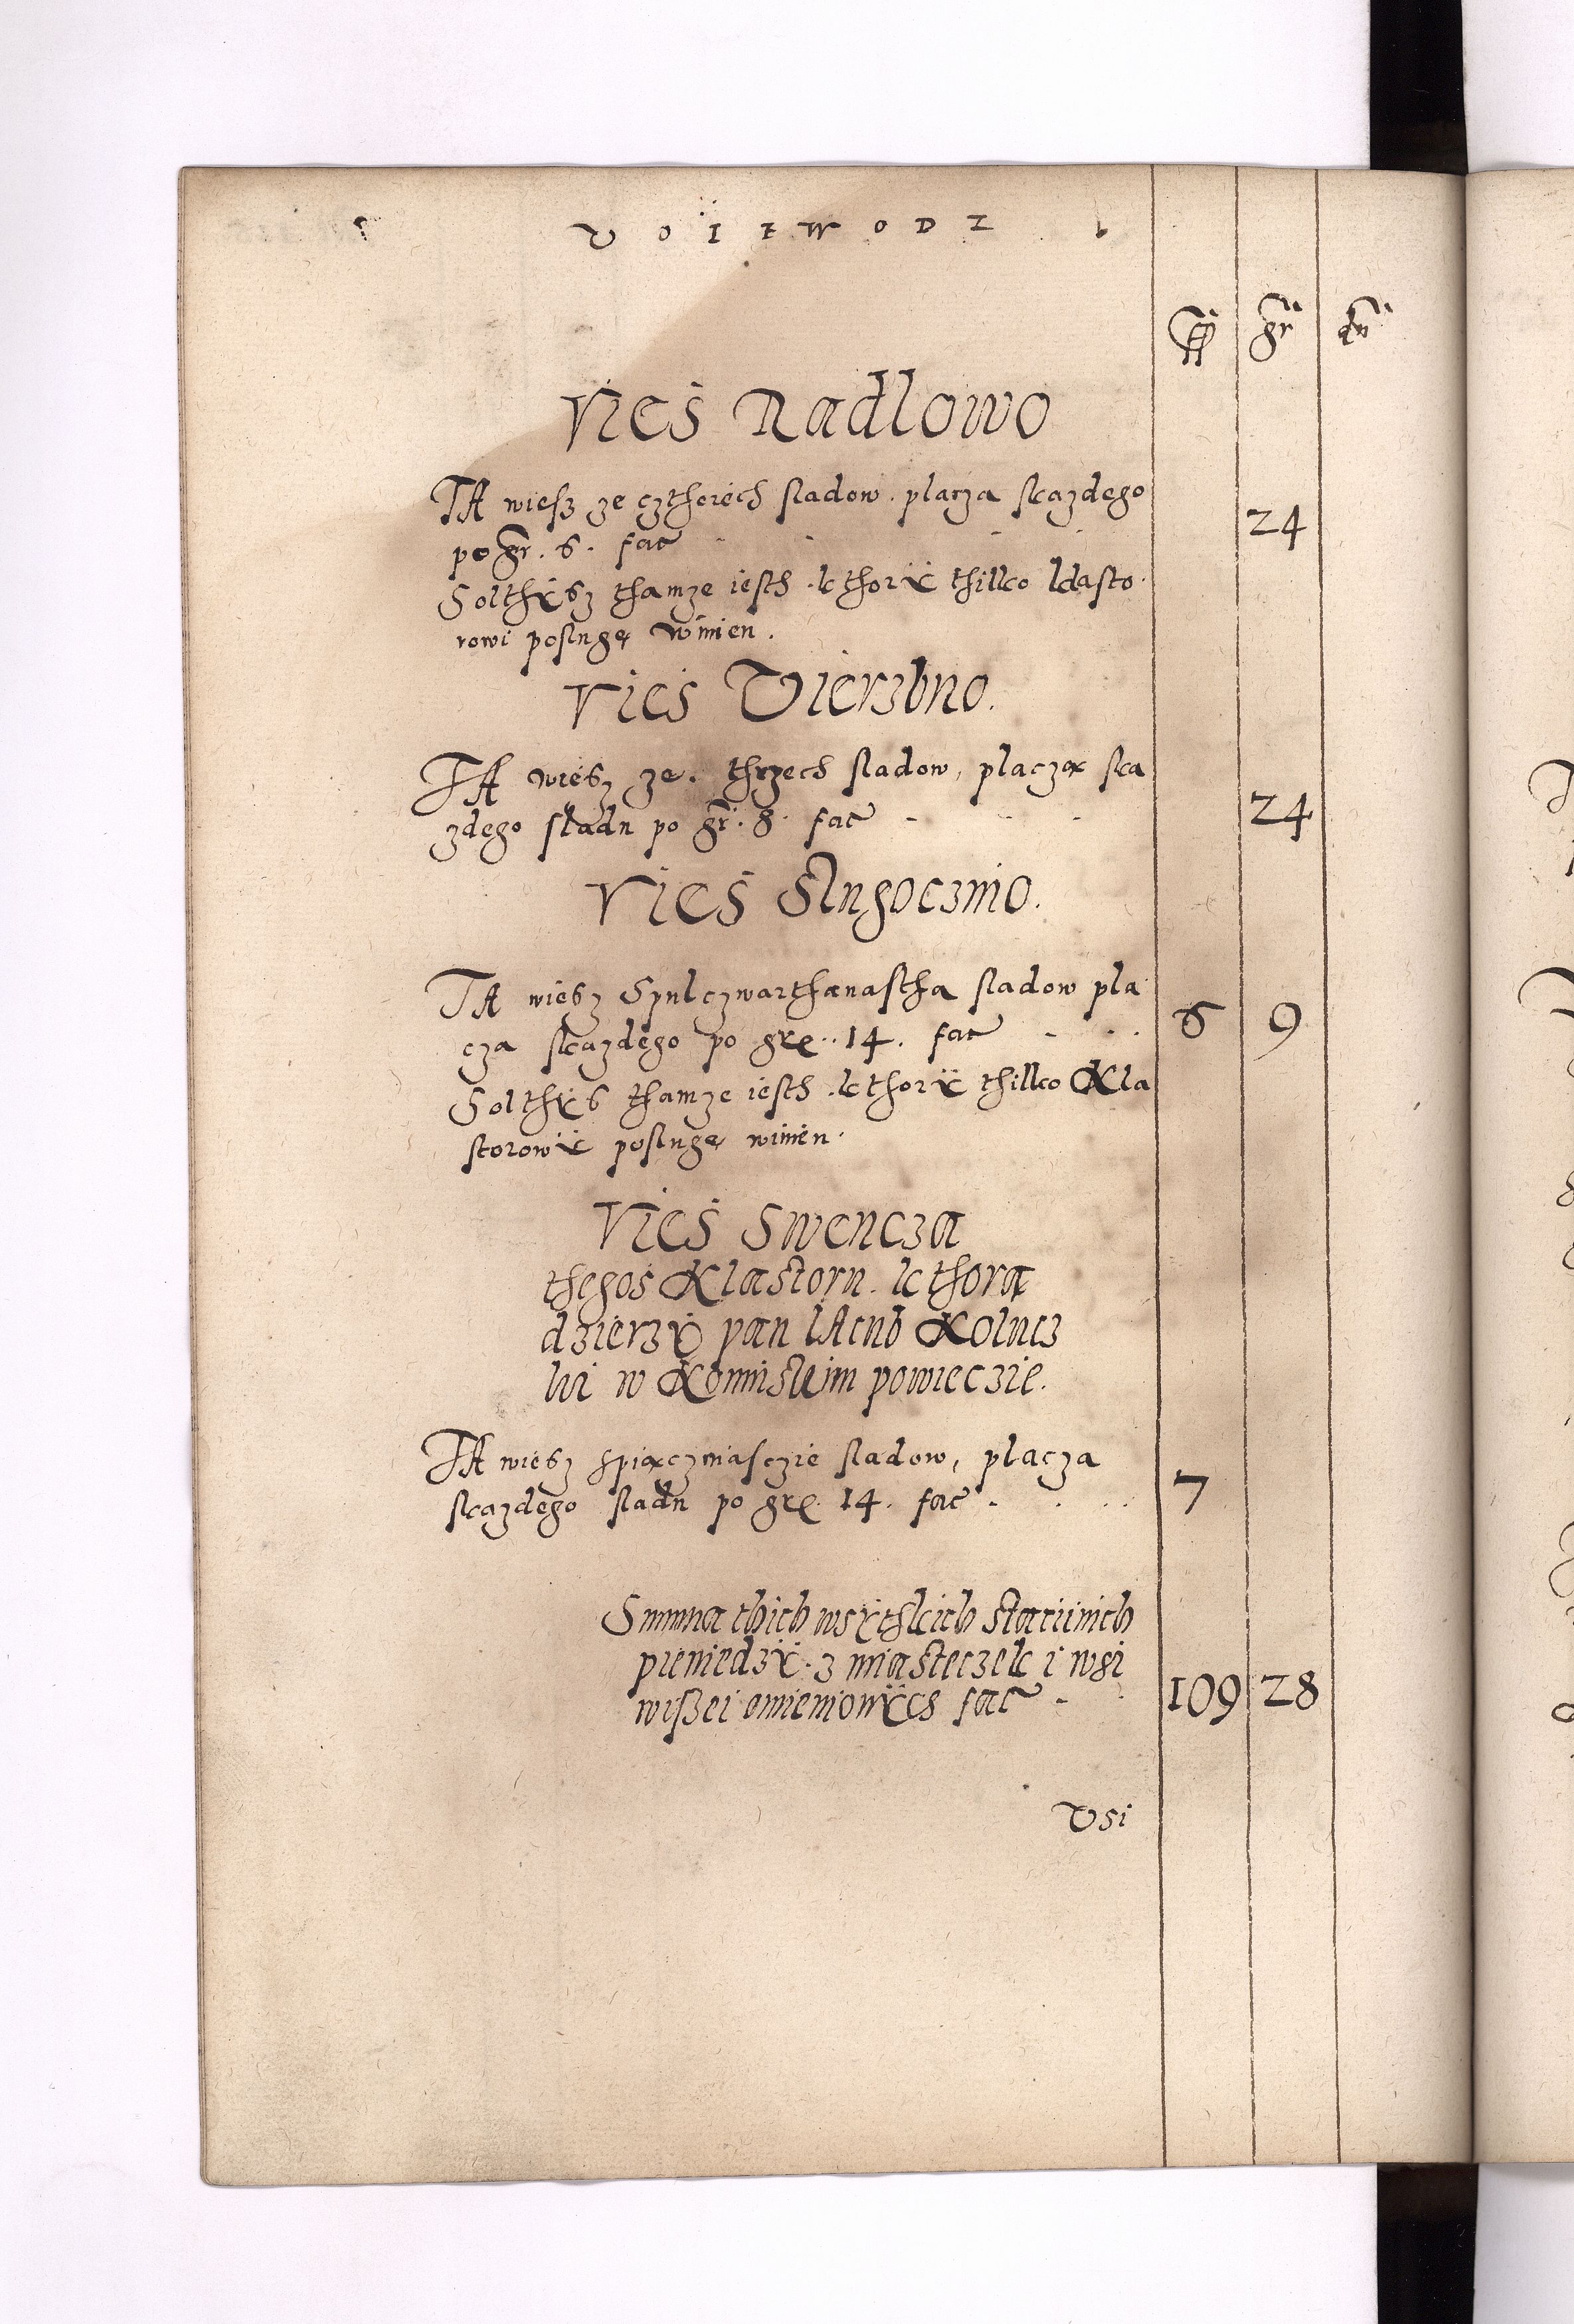 VOIEWODZ
fl gr den
Vieś Radlowo
TA wiesz ze cztherech sladow. placza skazdego
po gr. 6. fac 24
Solthÿsz thamze iesth. kthorÿ thilko klasto
rowi poslugę winien.
Vieś Vierzbno.
TA wiesz ze. thrzech sladow, placzą ska
zdego sladu po gr. 8. fac 24
Vieś Slugoczino.
TA wiesz Spulczwarthanastha sladow pla
cza skazdego po gre. 14. fac 6 9
Solthÿs thamze iesth. kthorÿ thilko Kla
storowÿ poslugę winien.
Vieś Swencza
thegoś Klastoru. kthorą
dzierzÿ pan IAcub Kolucz
ki w Koninskim powieczie.
TA wiesz spiączinasczie sladow, placza
skazdego sladu po gre. 14. fac 7
Summa thich wsÿthkich staciinich
pieniedzÿ. z miasteczek i wsi
wiszei omienionÿch fac 109 28
Vsi